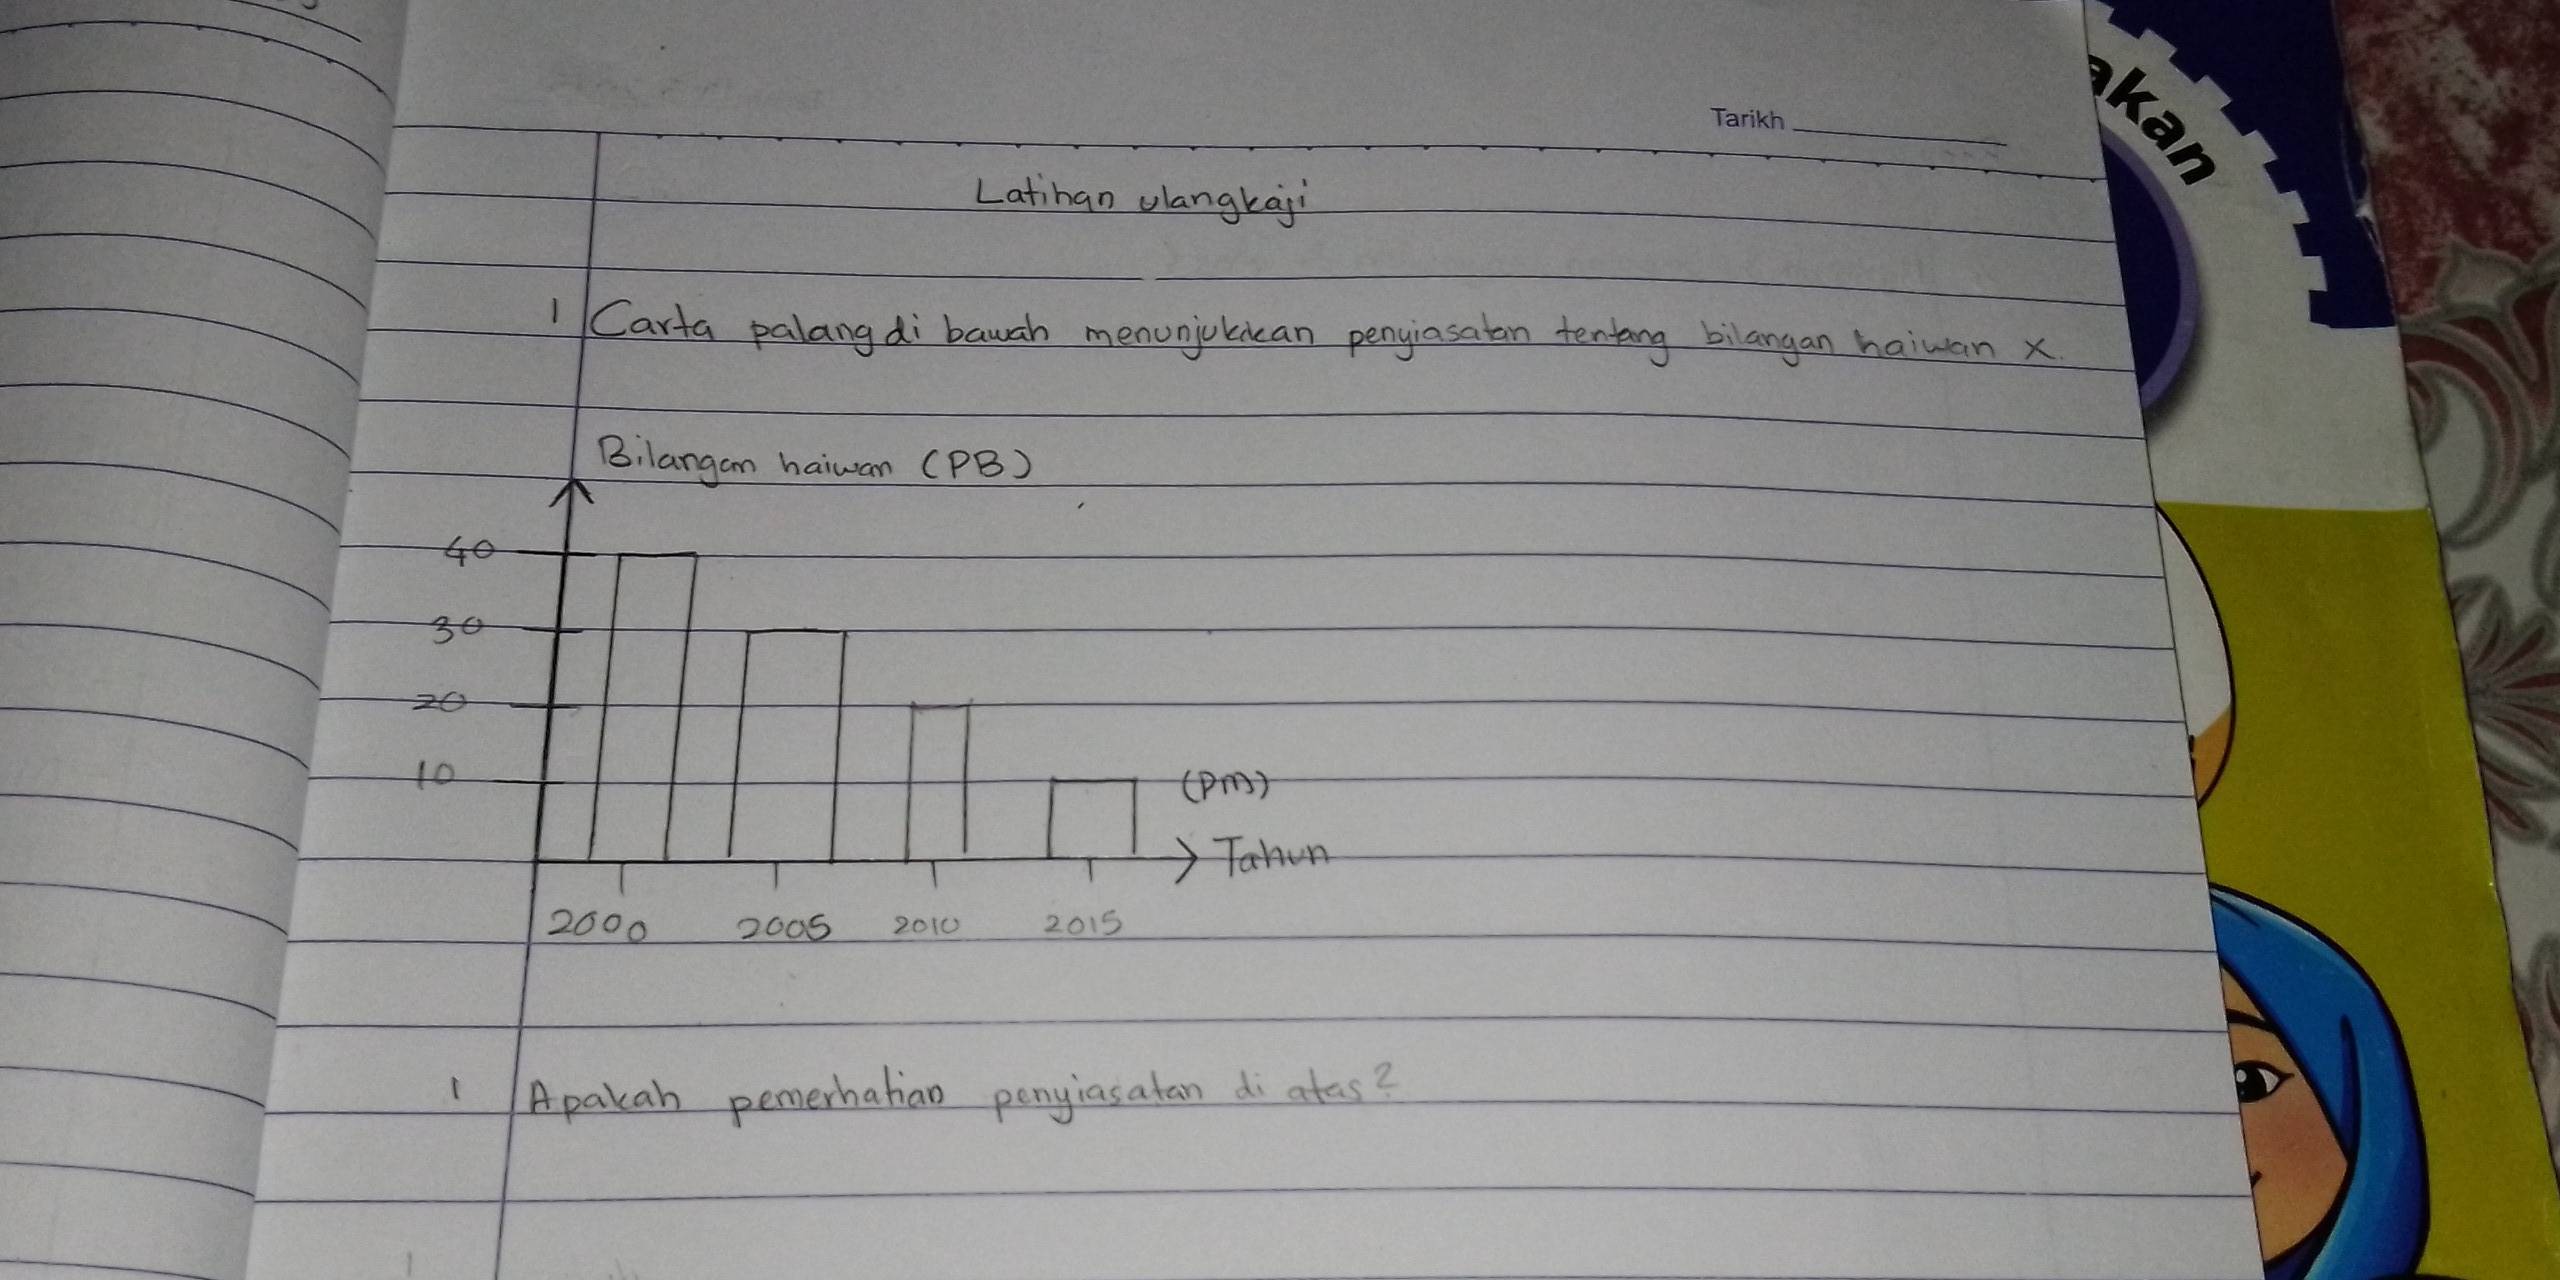 akan
Tarikh
Latihan ulangkaji
1 Carta palang di bawah menunjukkan penyiasatan tentang bilangan haiwan x.
Bilangan haiwan (PB)
40
30
20
10
(PM)
Tahun
2000 2005 2010 2015
1 Apakah pemerhatian penyiasatan di atas?